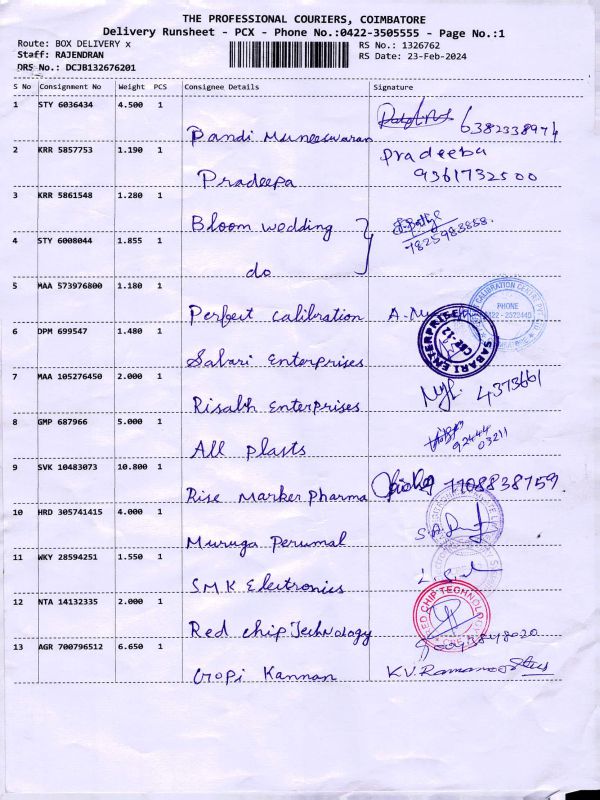 THE PROFESSIONAL COURIERS, COIMBATORE
Delivery Runsheet - PCX - Phone No.:0422-3505555 - Page No.:1
Route: BOX DELIVERY x
RS No.: 1326762
Staff: RAJENDRAN
RS Date: 23-Feb-2024
DRS No.: DCJB132676201
S No Consignment No Weight PCS Consignee Details Signature
1 STY 6036434 4.500 1
Pandi Muneeswaran 6382338974
2 KRR 5857753 1.190 1 Pradeeba
Pradeepa 9361732500
3 KRR 5861548 1.280 1
Bloom wedding 7825983858.
4 STY 6008044 1.855 1
do
5 MAA 573976800 1.180 1
Perfect calibration
CALIBRATION CENTRE
PHONE
6 DPM 699547 1.480 1
Sabari Enterprises
SABARI ENTERPRISE
7 MAA 105276450 2.000 1
Risabh Enterprises 4373661
8 GMP 687966 5.000 1
All plasts 92444
03211
9 SVK 10483073 10.800 1
Rise Marker Pharma 7708838759.
10 HRD 305741415 4.000 1
Muruga Perumal
11 WKY 28594251 1.550 1
S.M.K Electronics
12 NTA 14132335 2.000 1
Red chip Technology
RED CHIP TECHNOLOGY
13 AGR 700796512 6.650 1
Gopi Kannan K.V.